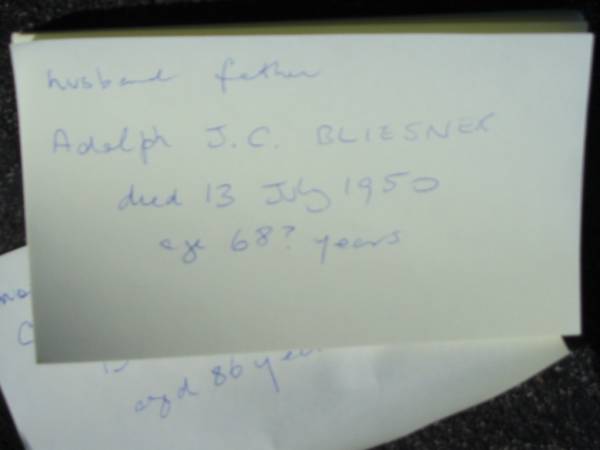 husband father
Adolph J.C. BLIESNER
died 13 July 1950
age 68? years
aged 86